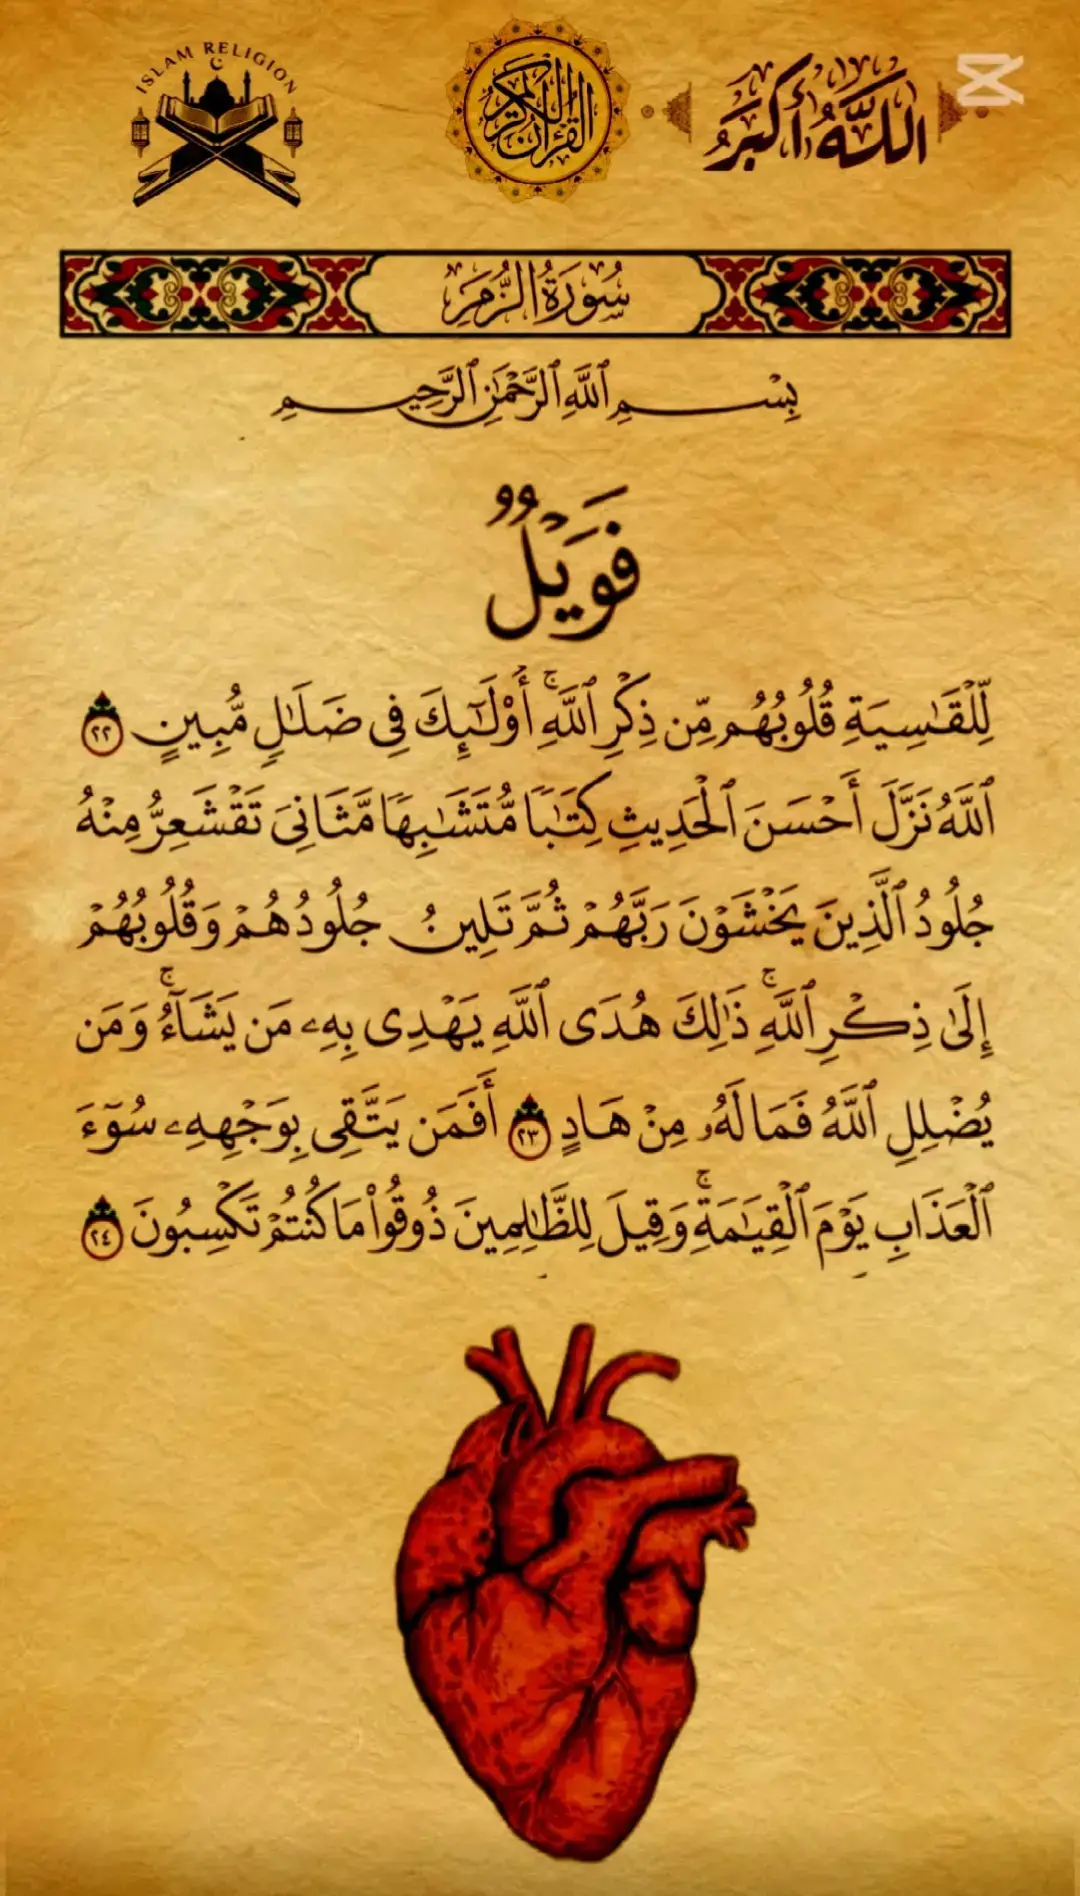 ISLAM RELIGION
القرآن الكريم
اللَّهُ أَكْبَرُ
سُورَةُ الزُّمَرِ
بِسْمِ ٱللَّهِ ٱلرَّحْمَٰنِ ٱلرَّحِيمِ
فَوَيْلٌ
لِّلْقَٰسِيَةِ قُلُوبُهُم مِّن ذِكْرِ ٱللَّهِۚ أُو۟لَٰٓئِكَ فِى ضَلَٰلٍ مُّبِينٍ ٢٢
ٱللَّهُ نَزَّلَ أَحْسَنَ ٱلْحَدِيثِ كِتَٰبًا مُّتَشَٰبِهًا مَّثَانِىَ تَقْشَعِرُّ مِنْهُ
جُلُودُ ٱلَّذِينَ يَخْشَوْنَ رَبَّهُمْ ثُمَّ تَلِينُ جُلُودُهُمْ وَقُلُوبُهُمْ
إِلَىٰ ذِكْرِ ٱللَّهِۚ ذَٰلِكَ هُدَى ٱللَّهِ يَهْدِى بِهِۦ مَن يَشَآءُۚ وَمَن
يُضْلِلِ ٱللَّهُ فَمَا لَهُۥ مِنْ هَادٍ ٢٣ أَفَمَن يَتَّقِى بِوَجْهِهِۦ سُوٓءَ
ٱلْعَذَابِ يَوْمَ ٱلْقِيَٰمَةِۚ وَقِيلَ لِلظَّٰلِمِينَ ذُوقُوا۟ مَا كُنتُمْ تَكْسِبُونَ ٢٤